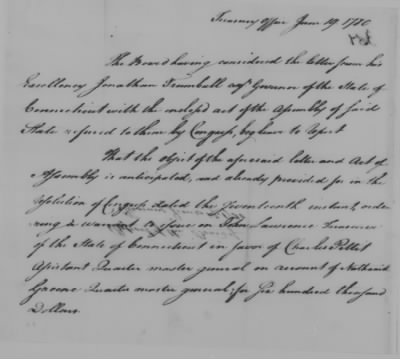 Treasury Office June 19. 1780
The Board having considered the letter from his
Excellency Jonathan Trumbull esqr. Governor of the State of
Connecticut with the inclosed act of the Assembly of said
State referred to them by Congress, beg leave to Report
That the object of the aforesaid letter and Act of
Assembly is anticipated, and already provided for in the
resolution of Congress dated the seventeenth instant, order
ing a warrant to issue on John Lawrence Treasurer
of the State of Connecticut in favor of Charles Pettit
Assistant Quarter master general on account of Nathaniel
Greene Quarter master general; for Six hundred thousand
Dollars.